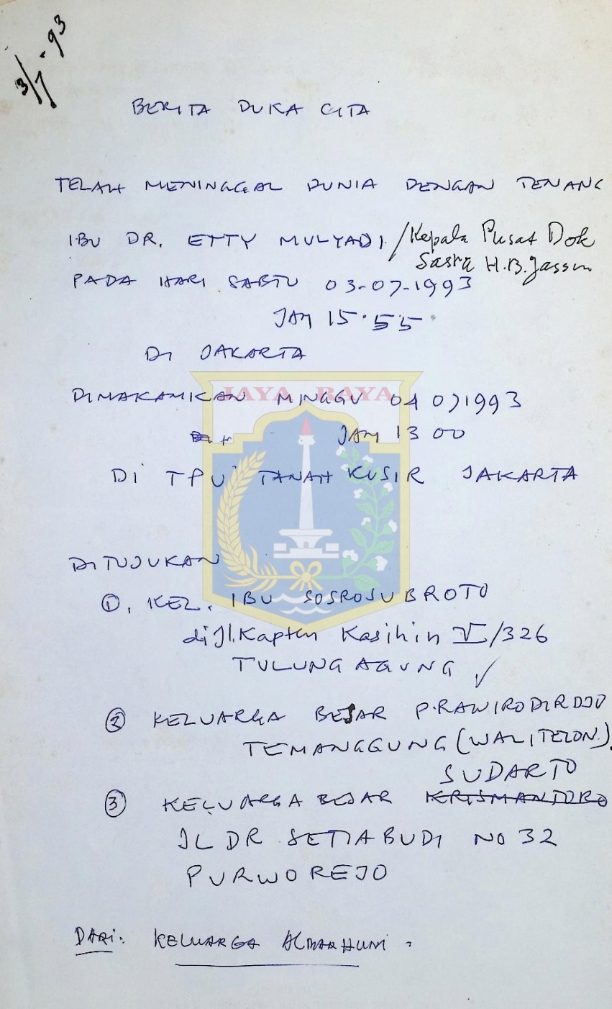 3/7-93
BERITA DUKA CITA
TELAH MENINGGAL DUNIA DENGAN TENANG
IBU DR. ETTY MULYADI / Kepala Pusat Dok
Sastra H.B. Jassin
PADA HARI SABTU 03-07-1993
JAM 15.55.
DI JAKARTA
JAYA RAYA
DIMAKAMKAN MINGGU 04 071993
JAM 13 00
DI TPU TANAH KUSIR JAKARTA
DITUJUKAN
①. KEL. IBU SOSROSUBROTO
di Jl. Kapten Kasihin V/326
TULUNG AGUNG ✓
② KELUARGA BESAR P. RAWIRODIRDJO
TEMANGGUNG (WALITELON).
SUDARTO
③ KELUARGA BESAR KRISMANTORO
JL DR SETIABUDI NO 32
PURWOREJO
DARI: KELUARGA ALMARHUM.